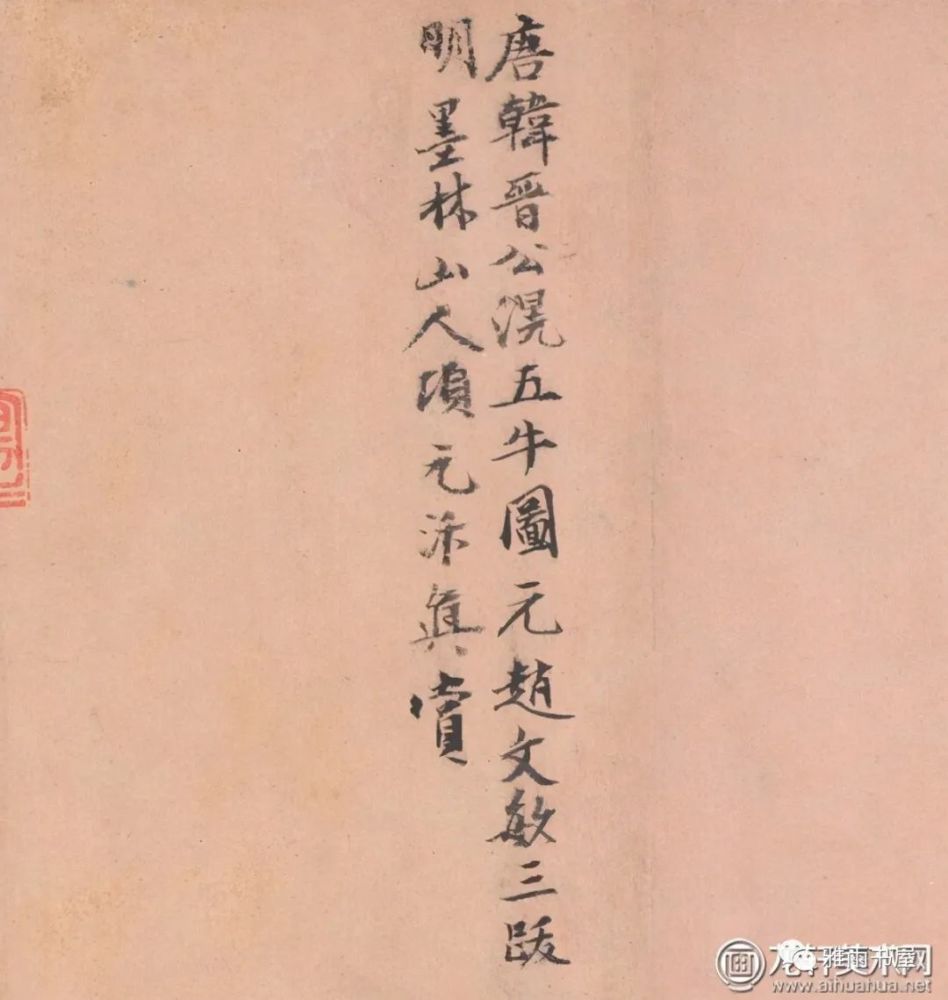 唐韓晉公滉五牛圖元趙文敏三跋
明墨林山人項元汴真賞
雅雨书屋
www.aihuahua.net